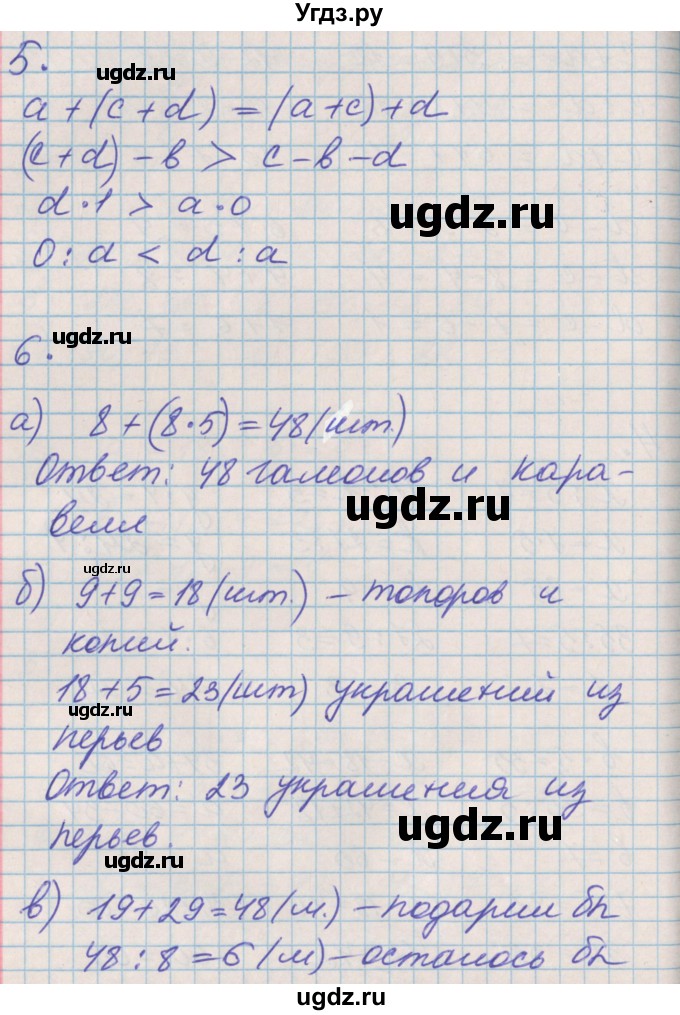 Угдз.ру
5.
ugdz.ru
a + (c + d) = (a + c) + d
(c + d) - в > c - в - d
d · 1 > a · 0
ugdz.ru
0 : d < d : a
ugdz.ru
6.
а) 8 + (8 · 5) = 48 (шт.)
Ответ: 48 галионов и кара-
ugdz.ru
велл
ugdz.ru
б) 9 + 9 = 18 (шт.) – топоров и
копий.
18 + 5 = 23 (шт) украшений из
ugdz.ru
перьев
Ответ: 23 украшения из
ugdz.ru
перьев.
ugdz.ru
в) 19 + 29 = 48 (м.) – подарил бы
48 : 8 = 6 (м) – осталось бы
ugdz.ru